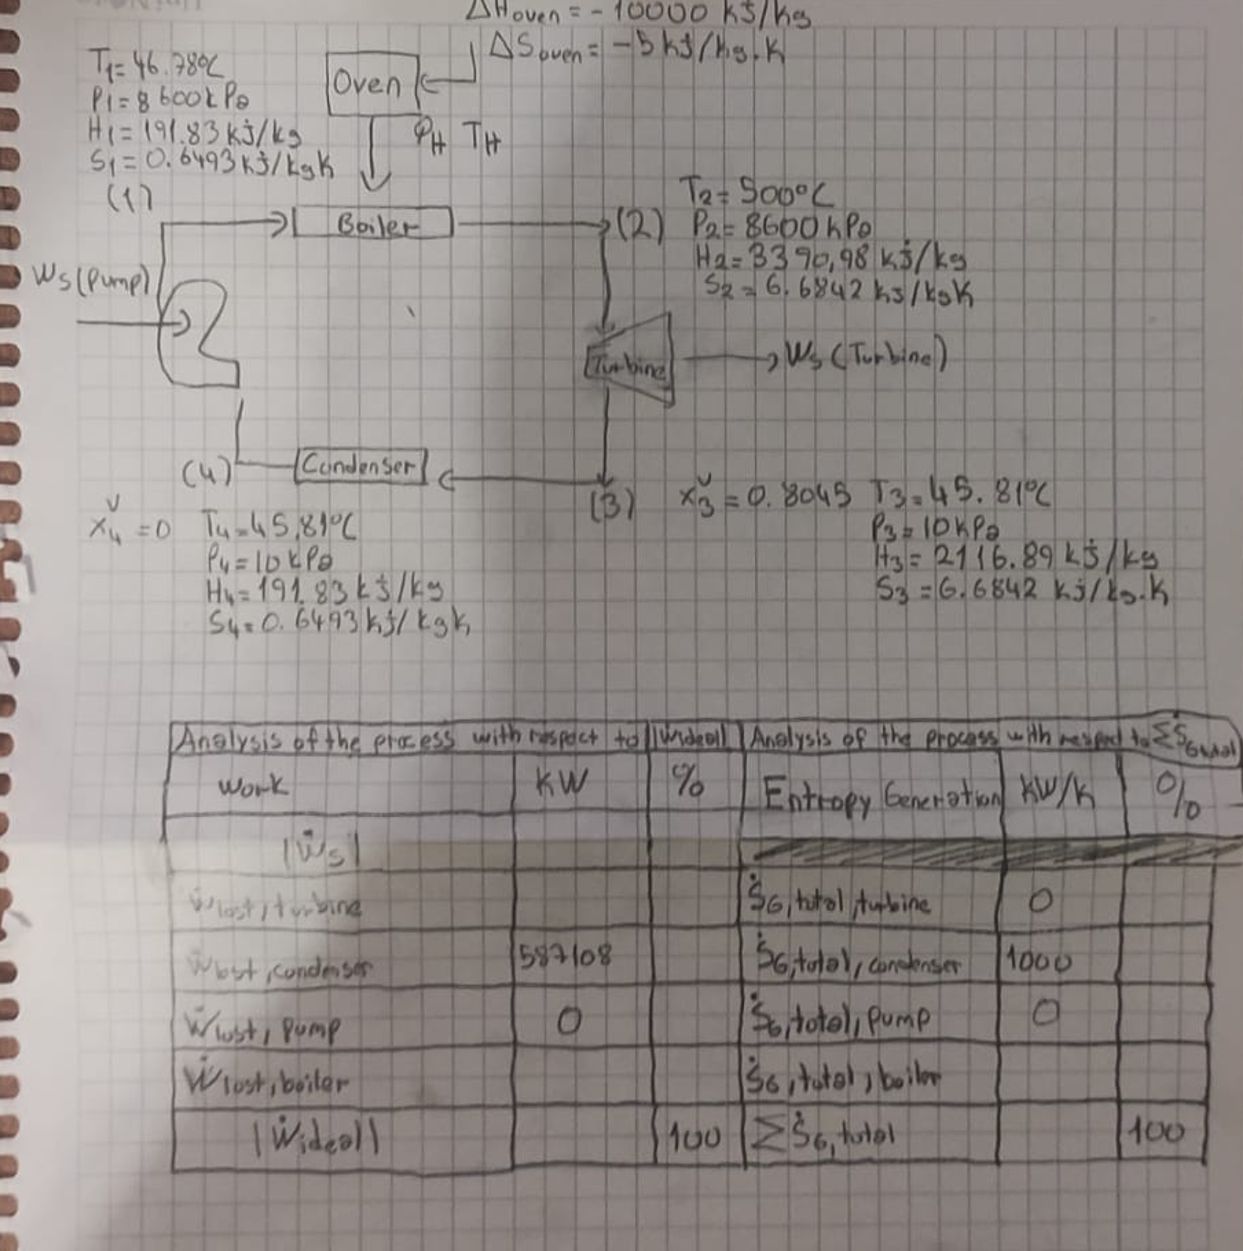 ΔHoven = -10000 kJ/kg
ΔSoven = -5 kJ/kg.K
T1= 46.78°C
P1= 8600kPa
H1= 191.83 kJ/kg
S1= 0.6493 kJ/kgK
(1)
Oven
QH TH
Boiler
(2)
T2= 500°C
P2= 8600 kPa
H2= 3390,98 kJ/kg
S2= 6.6842 kJ/kgK
Ws (Pump)
Turbine
Ws (Turbine)
(4)
Condenser
(3)
x3^v = 0.8045 T3= 45.81°C
P3= 10kPa
H3= 2116.89 kJ/kg
S3= 6.6842 kJ/kg.K
x4^v = 0 T4= 45,81°C
P4= 10 kPa
H4= 191.83 kJ/kg
S4= 0.6493 kJ/kgK
Analysis of the process with respect to |Wideal| Analysis of the process with respect to ΣṠG,total
Work KW % Entropy Generation KW/K %
|Ẇs|
Ẇlost, turbine ṠG, total, turbine 0
Ẇlost, condenser 587108 ṠG, total, condenser 1000
Ẇlost, pump 0 ṠG, total, pump 0
Ẇlost, boiler ṠG, total, boiler
|Ẇideal| 100 ΣṠG, total 100